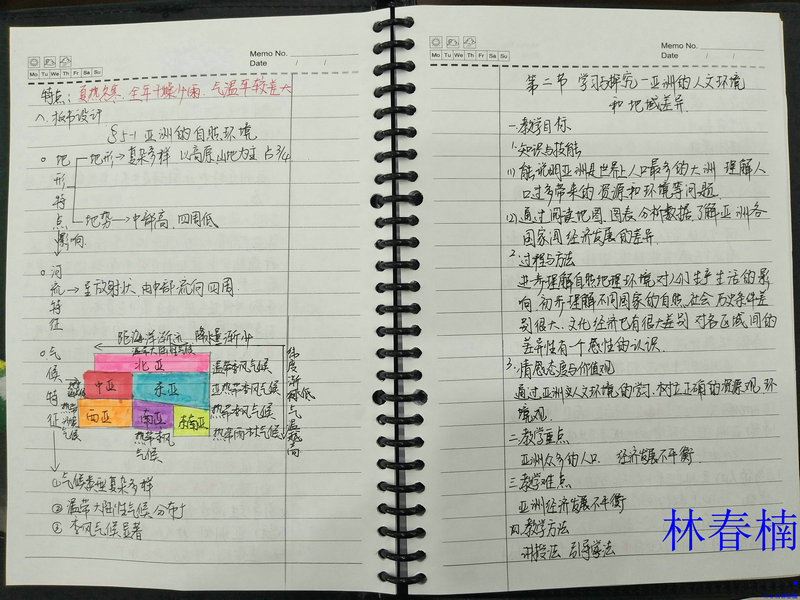 Memo No.
Date / /
Mo Tu We Th Fr Sa Su
特点：夏热冬寒.全年干燥少雨.气温年较差大
八.板书设计
§5-1 亚洲的自然环境
地形特点
地形→复杂多样 以高原山地为主 占3/4
地势→中部高.四周低
影响
河流特征
→呈放射状 由中部流向四周.
气候特征
距海洋渐远 降水量渐少
北亚
温带季风气候
中亚
东亚
亚热带季风气候
热带季风气候
西亚
南亚
东南亚
热带雨林气候
热带季风
气候
纬度渐降低 气温
①气候类型复杂多样
②温带大陆性气候分布广
③季风气候显著
Memo No.
Date / /
Mo Tu We Th Fr Sa Su
第二节 学习与探究—亚洲的人文环境
和地域差异.
一.教学目标
1.知识与技能
(1)能说明亚洲是世界上人口最多的大洲 理解人
口过多带来的资源和环境等问题.
(2)通过阅读地图.图表分析数据.了解亚洲各
国家间经济发展的差异.
2.过程与方法
进一步理解自然地理环境对人们生产生活的影
响 初步理解不同国家的自然.社会.历史条件差
别很大、文化经济也有很大差别 对各区域间的
差异性有一个感性的认识.
3.情感态度与价值观
通过亚洲人文环境的学习.树立正确的资源观.环
境观.
二.教学重点
亚洲众多的人口. 经济发展不平衡.
三.教学难点
亚洲经济发展不平衡
四.教学方法
讲授法 引导学法
林春楠